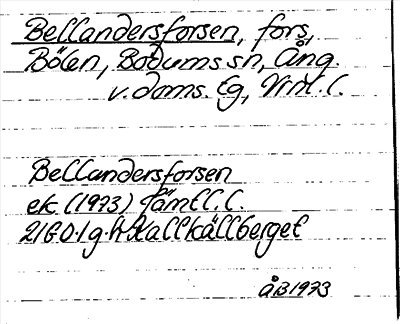 Bellandersforsen, fors,
Bölen, Bodums sn, Ång.
v. doms. Eg, Vrnl. l.
Bellandersforsen
ek. (1973) Jämtl. l.
21G0-1g-h Kallkällberget
ÅB 1973